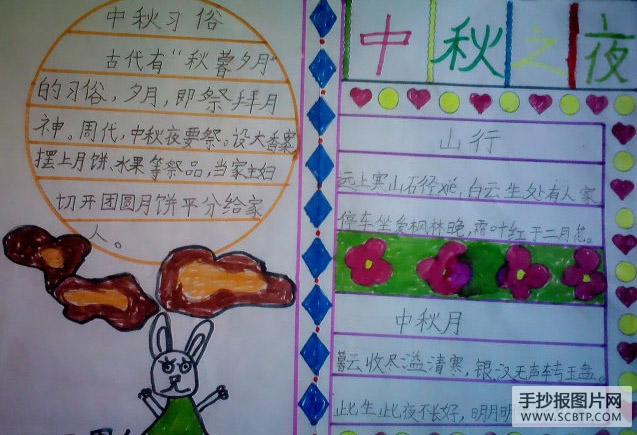 中秋习俗
古代有“秋暮夕月”
的习俗，夕月，即祭拜月
神。周代，中秋夜要祭。设大香案
摆上月饼、水果等祭品，当家主妇
切开团圆月饼平分给家
人。
中秋之夜
山行
远上寒山石径斜，白云生处有人家
停车坐爱枫林晚，霜叶红于二月花。
中秋月
暮云收尽溢清寒，银汉无声转玉盘。
此生此夜不长好，明月明
手抄报图片网
WWW.SCBTP.COM